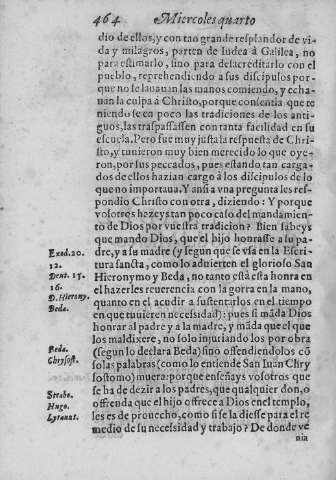 464 Miercoles quarto
dio de ellos, y con tan grande resplandor de vi-
da y milagros, parten de Iudea à Galilea, no
para estimarlo, sino para desacreditarlo con el
pueblo, reprehendiendo a sus discipulos por-
que no se lauauan las manos comiendo, y echa-
uan la culpa à Christo, porque consentia que te
niendose en poco las tradiciones de los anti-
guos, las traspassassen con tanta facilidad en su
escuela. Pero fue muy justa la respuesta de Chri-
sto, y tuuieron muy bien merecido lo que oye-
ron, por sus peccados, pues estando tan carga-
dos de ellos hazian cargo à los discipulos de lo
que no importaua. Y ansi a vna pregunta les res-
pondio Christo con otra, diziendo: Y porque
vosotros hazeys tan poco caso del mandamien-
to de Dios por vuestra tradicion? Bien sabeys
que mando Dios, que el hijo honrasse a su pa-
dre, y a su madre (y segun que se vsa en la Escri-
tura sancta, como lo aduierten el glorioso San
Hieronymo y Beda, no tanto està esta honra en
el hazerles reuerencia con la gorra en la mano,
quanto en el acudir a sustentarlos en el tiempo
en que tuuieren necessidad): pues si mãda Dios
honrar al padre y a la madre, y mãda que el que
los maldixere, no solo injuriando los por obra
(segun lo declara Beda) sino offendiendolos cõ
solas palabras (como lo entiende San Iuan Chry
sostomo) muera: porque enseñays vosotros que
se ha de dezir a los padres, que qualquier don, o
offrenda que el hijo offrece a Dios en el templo,
les es de prouecho, como si se la diesse para el re
medio de su necessidad y trabajo? De donde ve
nia
Exod. 20.
12.
Deut. 15.
16.
D. Hierony.
Beda.
Beda.
Chrysost.
Strabo.
Hugo.
Lyranus.